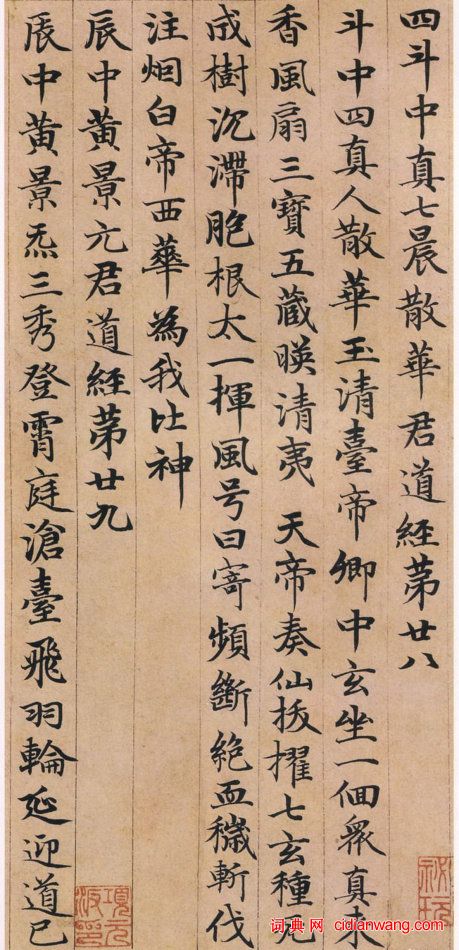 四斗中真七晨散華君道經苐廿八
斗中四真人散華玉清臺帝卿中玄坐一佪衆真來
香風扇三寳五蔵暎清夷 天帝奏仙拔擢七玄種
成樹沉滯胞根太一揮風号曰寄頻斷絶血穢斬伐
注烟白帝西華為我比神
辰中黄景元君道經苐廿九
辰中黄景炁三秀登霄庭滄臺飛羽輪延迎道已
词典网 cidianwang.com